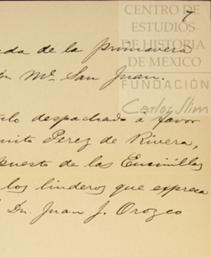 7
CENTRO DE
ESTUDIOS
DE HISTORIA
DE MEXICO
FUNDACIÓN
Carlos Slim
da de la primavera
n Mª San Juan.
lo despachado a favor
nito Perez de Rivera,
puesto de las Encinillas
los linderos que expresa
Dn. Juan J. Orozco